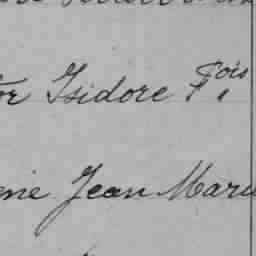 or Isidore Fçois
ne Jean Marie